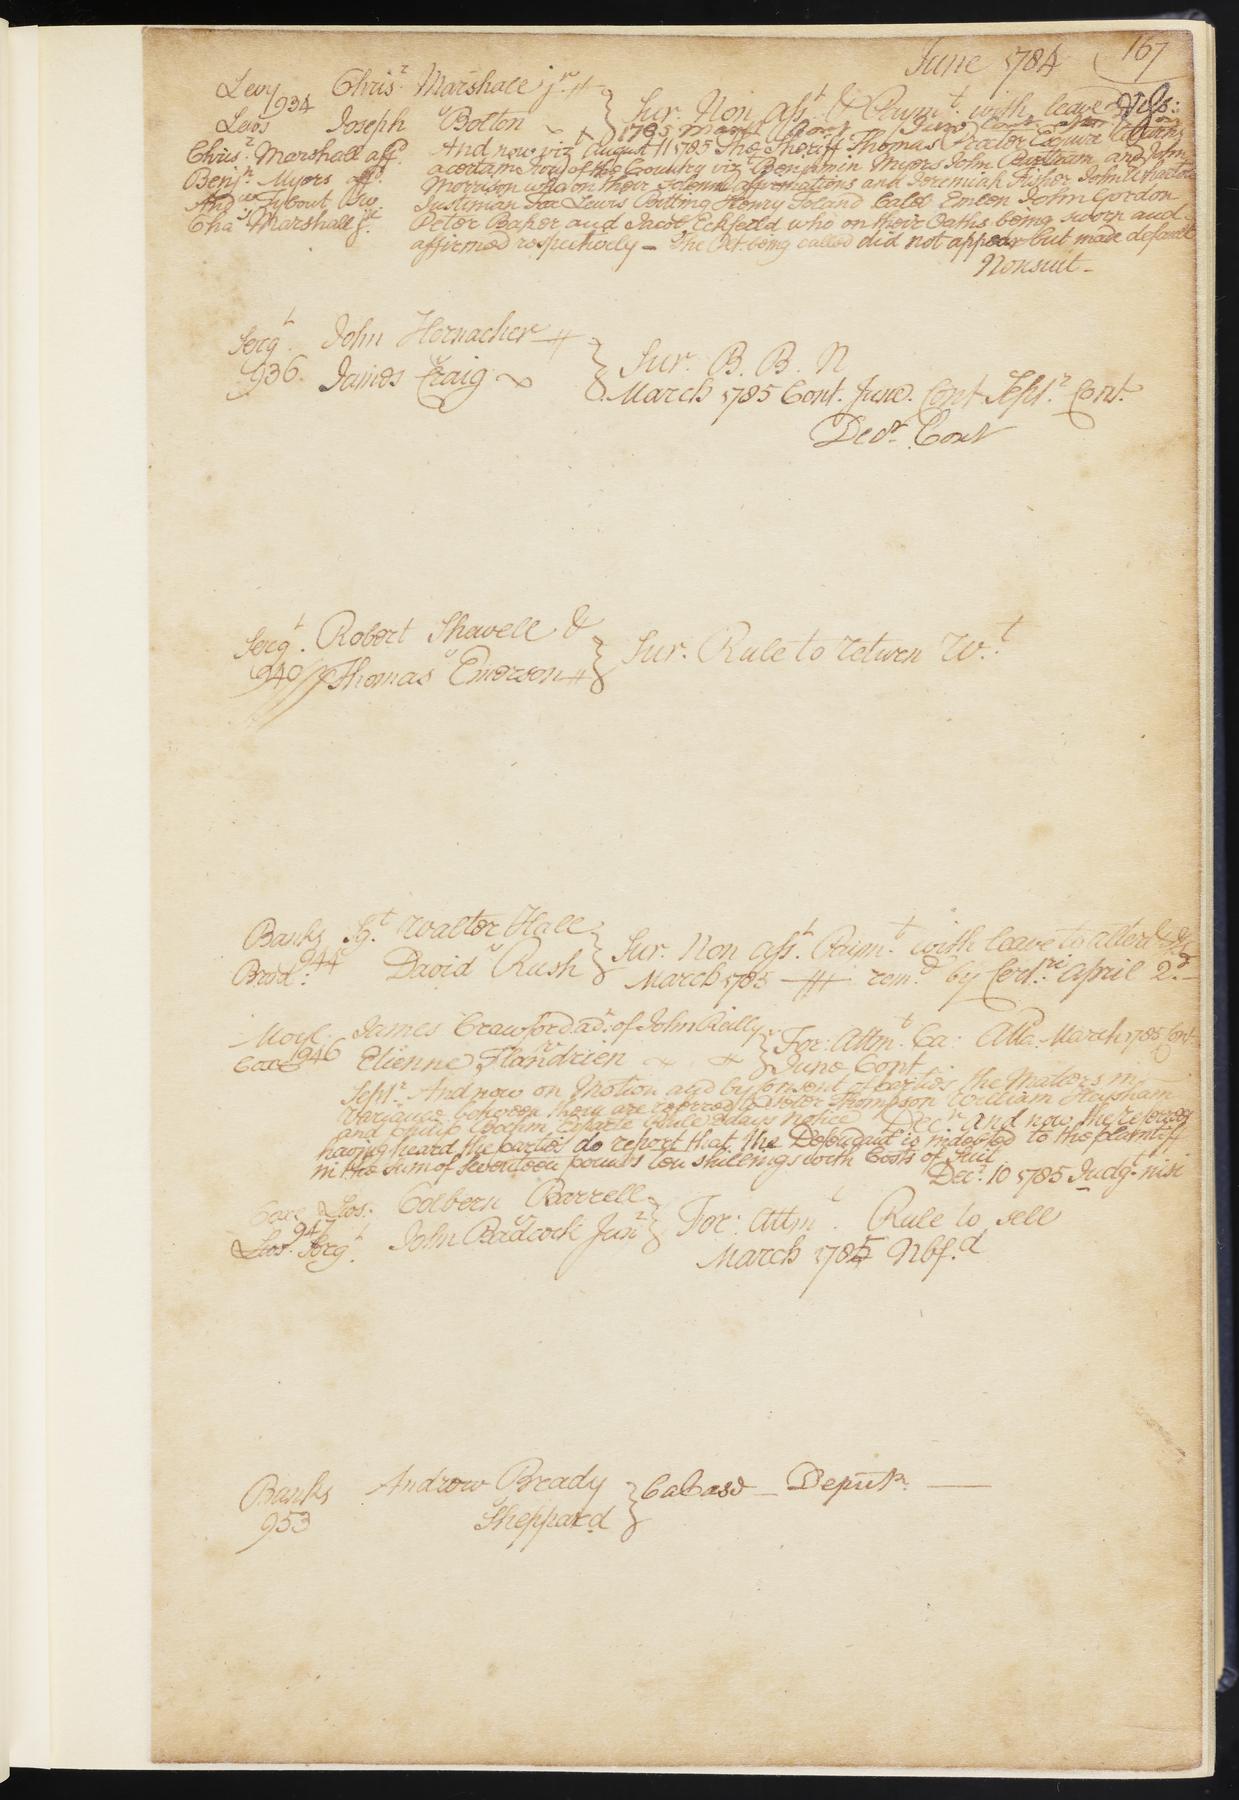 June 1784 167
Levy Chris.r Marshall j.r
934
Lewis Joseph Bolton Sur. Non Ass.t & Paim.t with leave
1785 March Cont June
And now viz.t August 11 1785 The Sheriff Thomas Proctor Esquire
Chris.r Marshall aff.d a certain Jury of the Country viz.t Benjamin Myers John and John
Benj.n Myers aff.d Morrison who on their solemn affirmations and Jeremiah Fisher John Wharton
And.w Tybout Sw. Justinian Fox Lewis Henry Toland Caleb Emlen John Gordon
Cha.s Marshall j.r Peter Baker and Jacob Eckfeild who on their Oaths being sworn and
affirmed respectively – The Plt being called did not appear but made default
Nonsuit –
Serg.t John Hernacher
936. James Craig Sur. B. B. N
March 1785 Cont. June. Cont Sept.r Cont.
Dec.r Cont
Serg.t Robert Shewell &
940 Thomas Emerson Sur. Rule to return W.t
Banks Sg.t Walter Hall
944
Brad. David Rush Sur. Non Ass.t Paim.t with leave to alter &c
March 1785 rem.d by Cert.ri April 2.d
Moyl. James Crawford ad.r of John Reilly For: Attm.t Ca: March 1785 Cont
Coxe 946 Etienne Flandrien June Cont
Sept.r And now on Motion and by consent of parties the Matters in
Variance between them are referred to Peter Thompson William Heysham
and Philip exparte Rule days notice Dec.r And now the referees
having heard the parties do report that the Defendant is indebted to the plaintiff
in the sum of Seventeen pounds ten shillings with Costs of Suit
Dec.r 10 1785 Judg.t nisi
Coxe Colbern Barrell
947
Serg.t John Badcock Jun.r For: Attm.t. Rule to sell
March 1785 Nbf.d
Banks Andrew Bready CaCasd – Deput.n
953 Sheppard